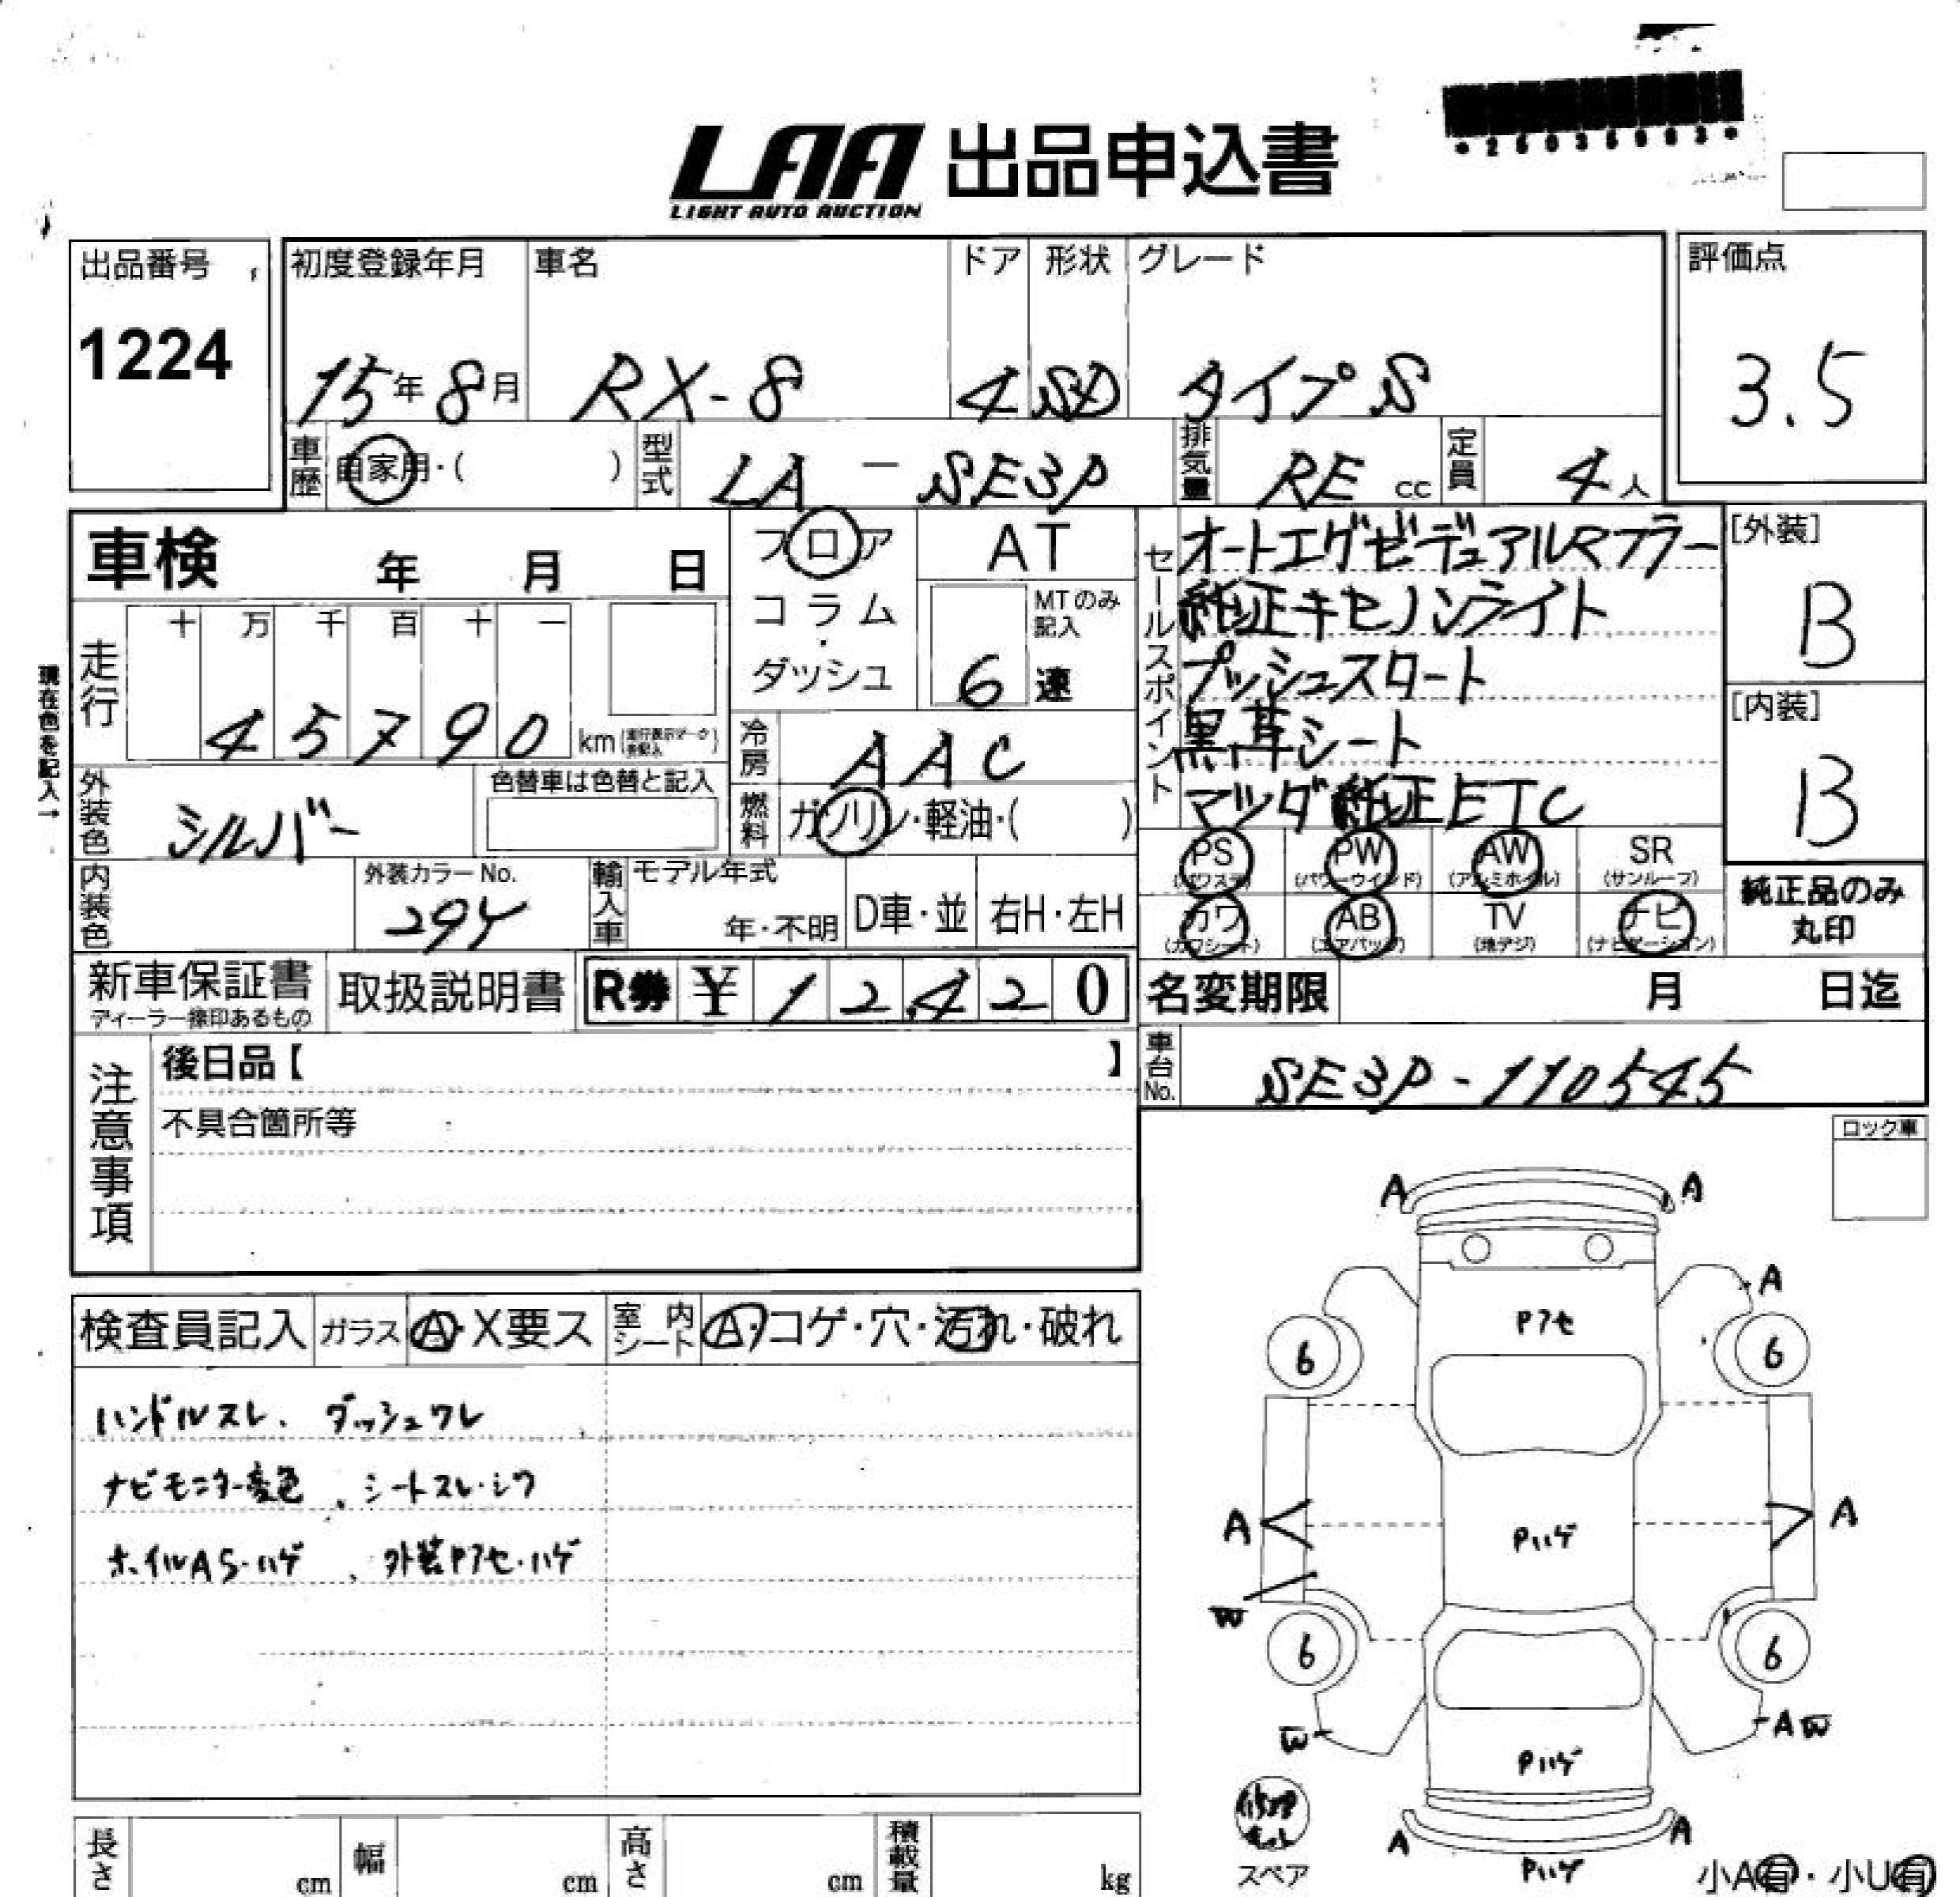 LAA 出品申込書
LIGHT AUTO AUCTION
出品番号
1224
初度登録年月
15年8月
車名
RX-8
ドア
4
形状
SD
グレード
タイプS
評価点
3.5
車歴
自家用・( )
型式
LA - SE3P
排気量
RE cc
定員
4人
車検 年 月 日
フロア
コラム・ダッシュ
AT
MTのみ記入
6速
セールスポイント
オートエグゼデュアルマフラー
純正キセノンライト
プッシュスタート
黒革シート
マツダ純正ETC
[外装]
B
[内装]
B
走行
十 万 千 百 十 一
45790 km
現在色を記入→
冷房
AAC
外装色
シルバー
色替車は色替と記入
燃料
ガソリン・軽油・( )
PS (パワステ)
PW (パワーウインド)
AW (アルミホイル)
SR (サンルーフ)
カワ (カワシート)
AB (エアバッグ)
TV (地デジ)
ナビ (ナビゲーション)
純正品のみ
丸印
内装色
外装カラーNo.
29Y
輸入車
モデル年式
年・不明
D車・並
右H・左H
新車保証書
ディーラー捺印あるもの
取扱説明書
R券 ¥12420
名変期限 月 日迄
車台No.
SE3P-110545
注意事項
後日品【 】
不具合箇所等
ロック車
検査員記入
ガラス
A・X要ス
室内シート
A・コゲ・穴・汚れ・破れ
ハンドルスレ、ダッシュワレ
ナビモニター変色、シートスレ・シワ
ホイルAS・ハゲ、外装Pアセ・ハゲ
A A
A
Pアセ
6 6
A Pハゲ A
W
6 6
W AW
Pハゲ
A A
Pハゲ
スペア
小A有・小U有
長さ cm
幅 cm
高さ cm
積載量 kg